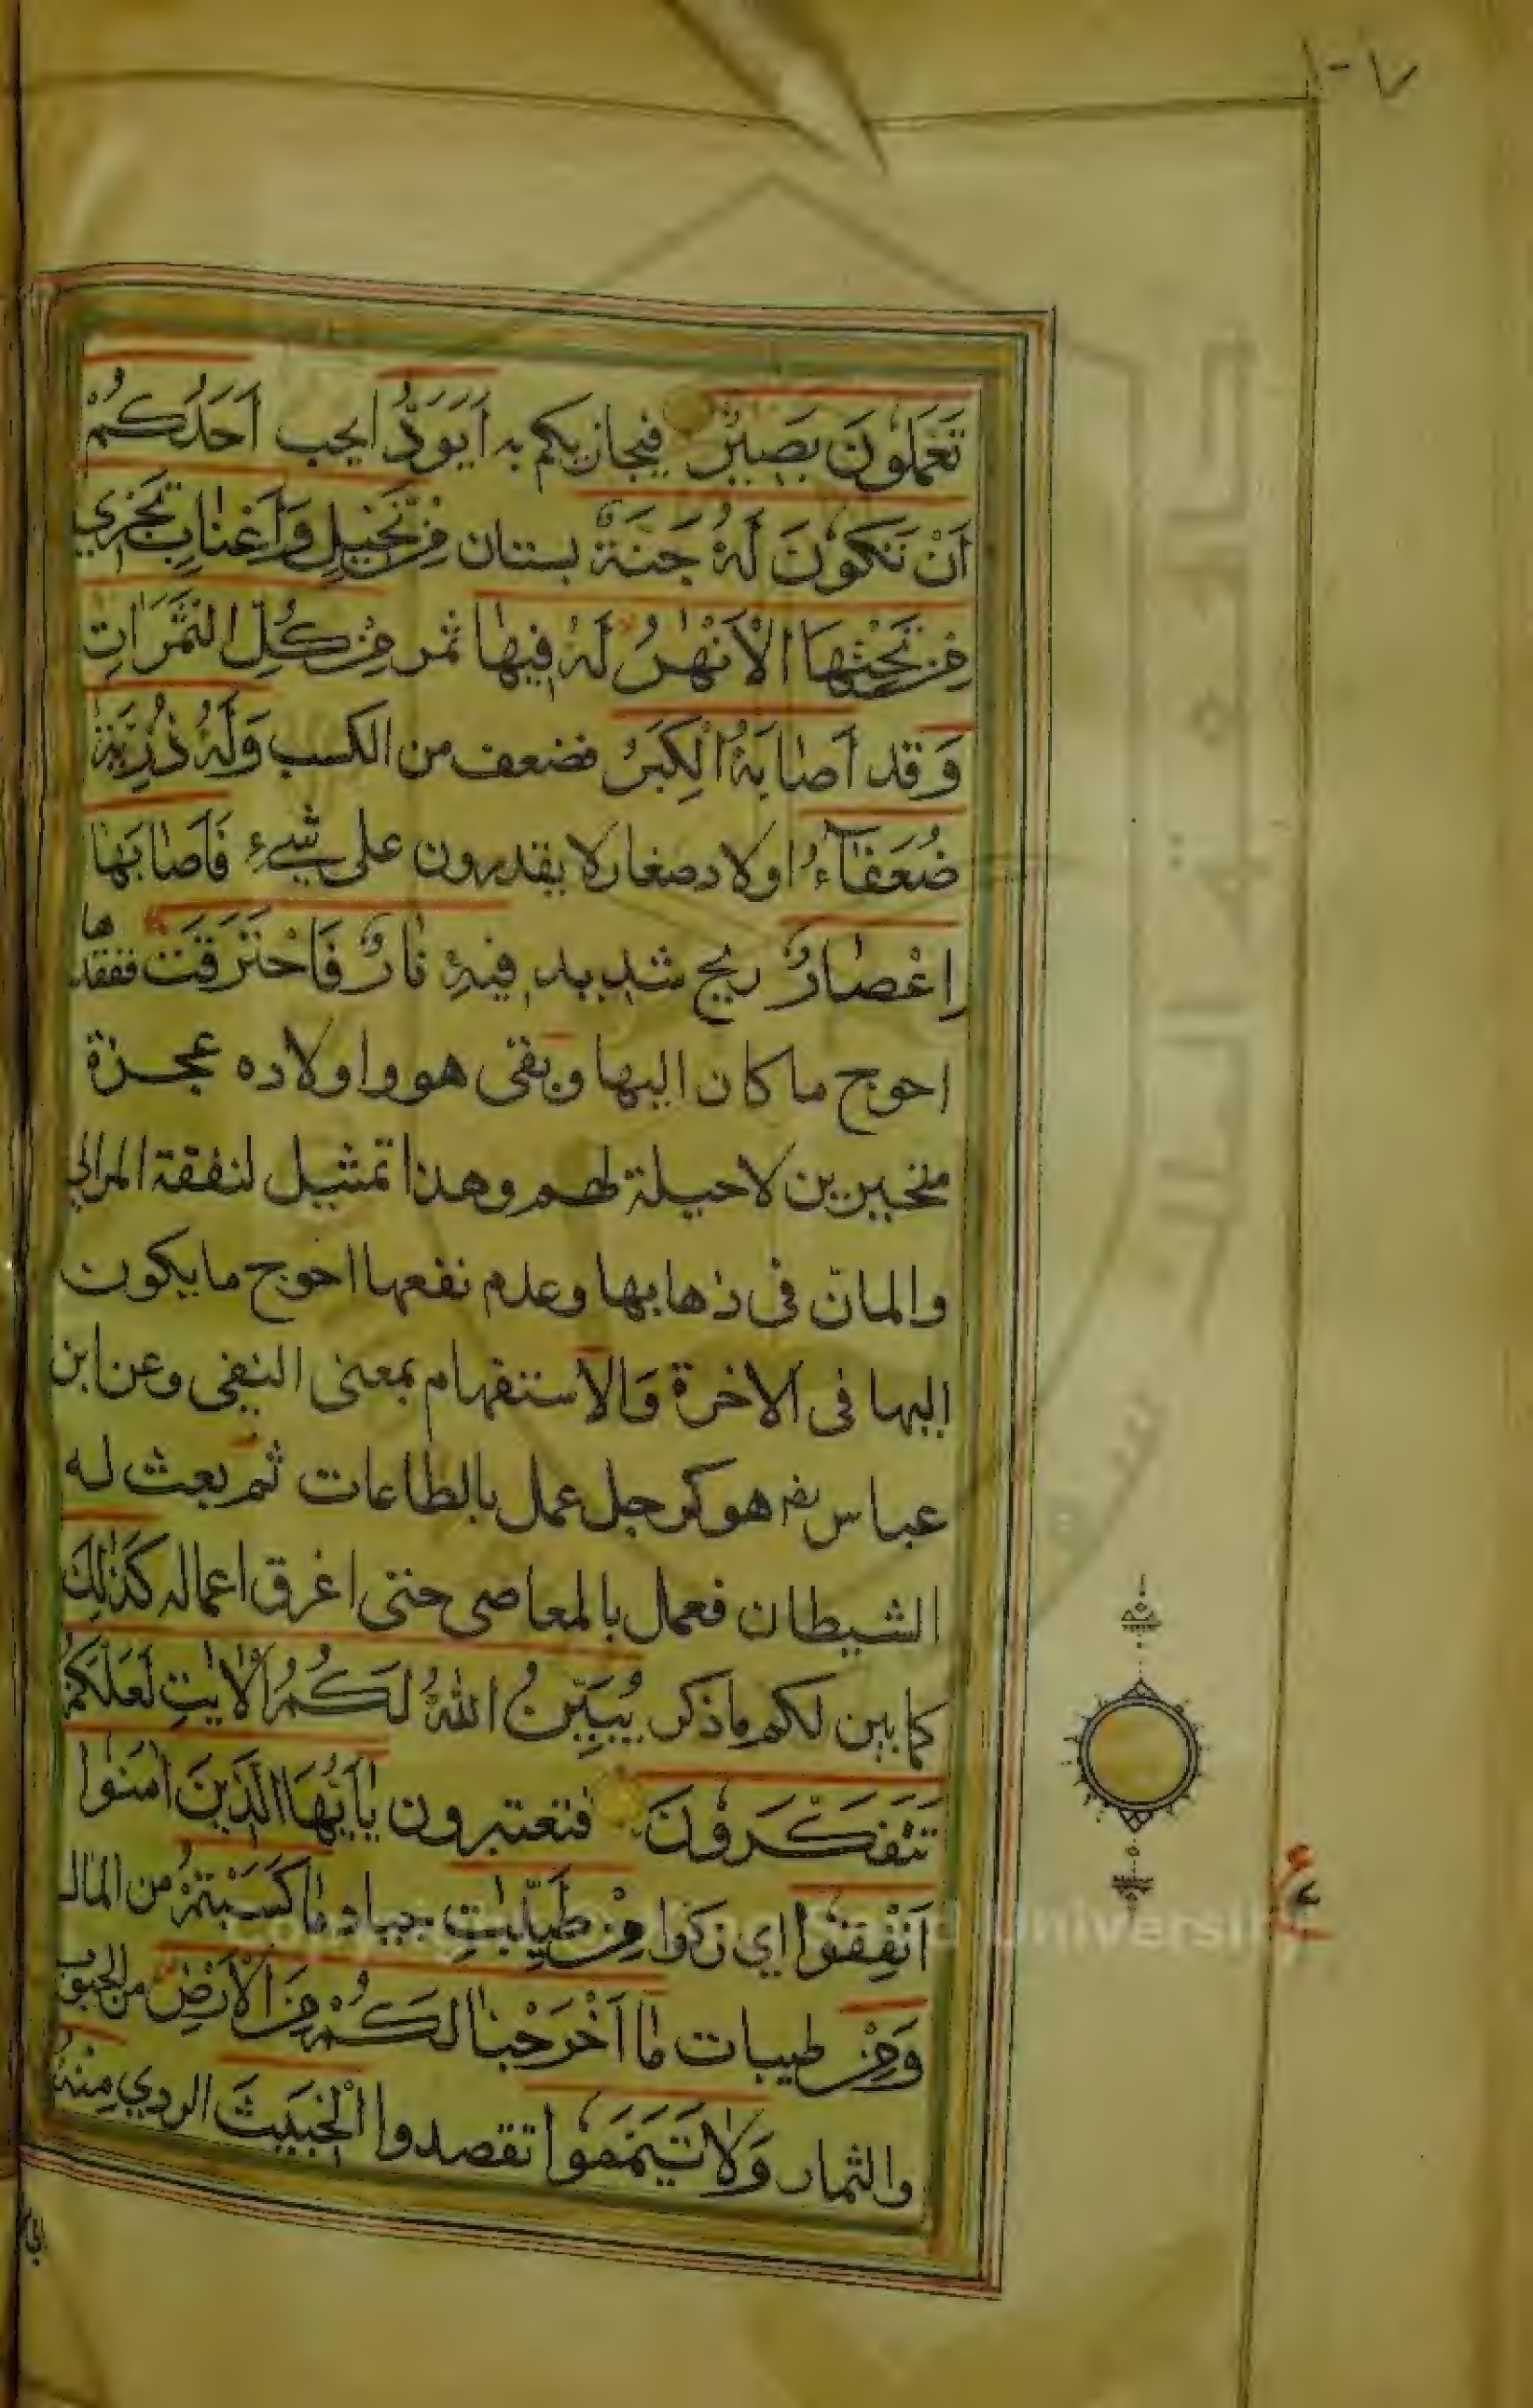 تَعْمَلُونَ بَصِيرٌ فيجازيكم به أَيَوَدُّ ايحب أَحَدُكُمْ
أَنْ تَكُونَ لَهُ جَنَّةٌ بستان مِنْ نَخِيلٍ وَأَعْنَابٍ تَجْرِي
مِنْ تَحْتِهَا الْأَنْهٰرُ لَهُ فِيهَا ثمر مِنْ كُلِّ الثَّمَرَاتِ
وَقد أَصَابَهُ الْكِبَرُ فضعف من الكسب وَلَهُ ذُرِّيَّةٌ
ضُعَفَآءُ اولاد صغار لا يقدرون على شيء فَأَصَابَهَا
إِعْصَارٌ ريح شديد فِيهِ نَارٌ فَاحْتَرَقَتْ ففقدها
احوج ما كان اليها وبقى هو واولاده عجزة
متحيرين لا حيلة لهم وهذا تمثيل لنفقة المرائي
والمانّ في ذهابها وعدم نفعها احوج ما يكون
اليها فى الاخرة وَالاستفهام بمعنى النفي وعن ابن
عباس رضى هو كرجل عمل بالطاعات ثم بعث له
الشيطان فعمل بالمعاصى حتى اغرق اعماله كَذٰلِكَ
كما بين لكم ما ذكر يُبَيِّنُ اللهُ لَكُمُ الْاٰيٰتِ لَعَلَّكُمْ
تَتَفَكَّرُونَ فتعتبرون يٰأَيُّهَا الَّذِينَ اٰمَنُوا
أَنْفِقُوا اي زكوا مِنْ طَيِّبٰتِ جياد مَا كَسَبْتُمْ من المال
وَمِنْ طيبات مَا أَخْرَجْنَا لَكُمْ مِنَ الْأَرْضِ من الحبوب
والثمار وَلَا تَيَمَّمُوا تقصدوا الْخَبِيثَ الردي مِنْهُ
ع
Copyright © King Saud University